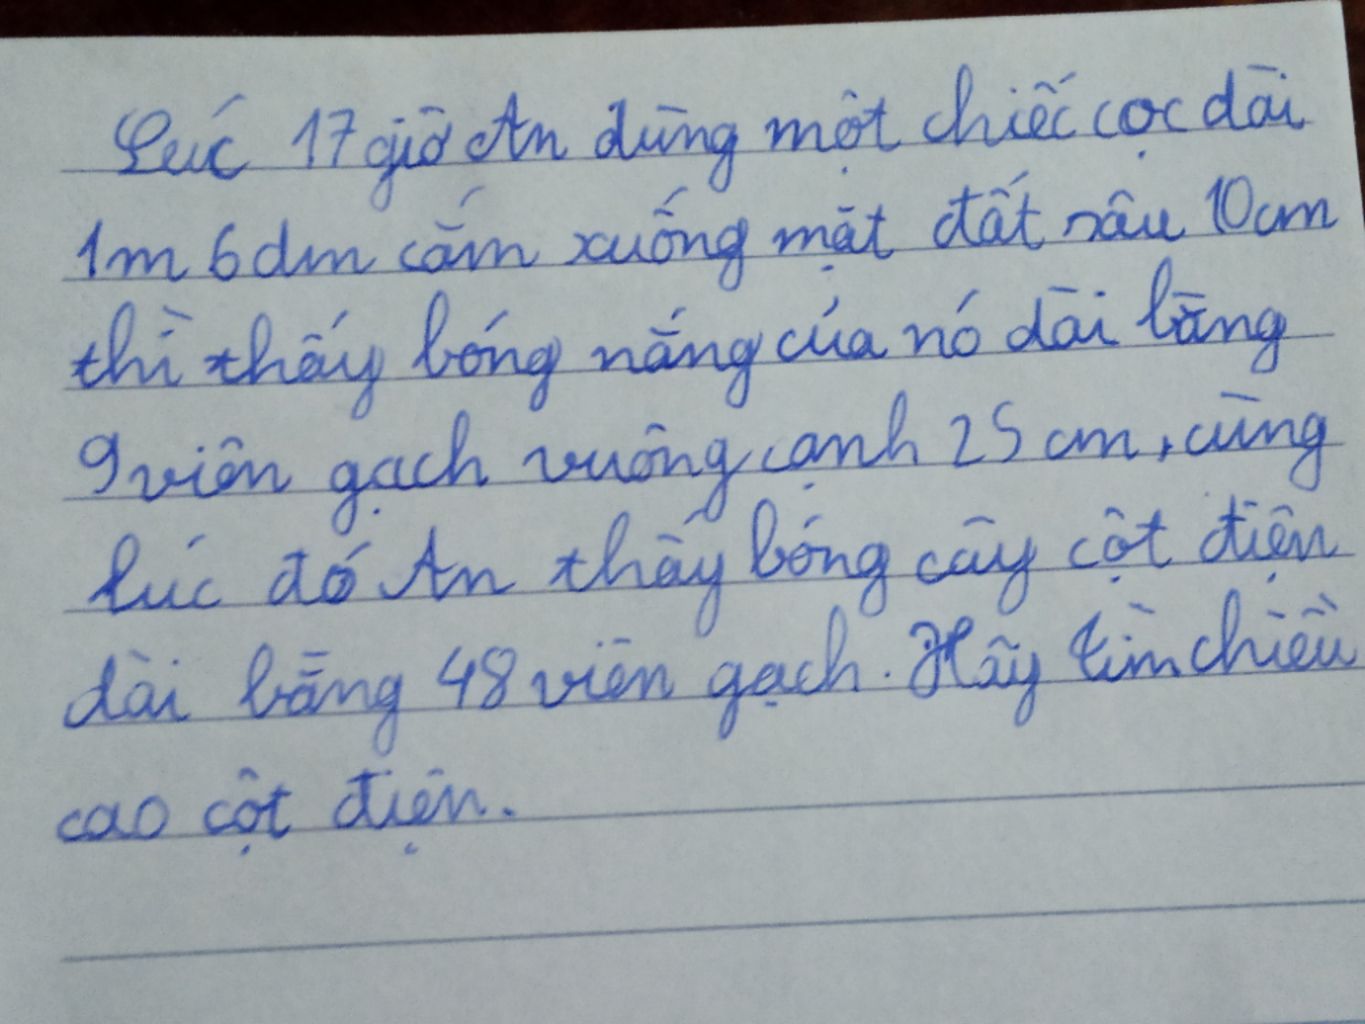 Lúc 17 giờ An dùng một chiếc cọc dài
1m 6 dm cắm xuống mặt đất sâu 10cm
thì thấy bóng nắng của nó dài bằng
9 viên gạch vuông cạnh 25 cm, cùng
lúc đó An thấy bóng cây cột điện
dài bằng 48 viên gạch. Hãy tìm chiều
cao cột điện.